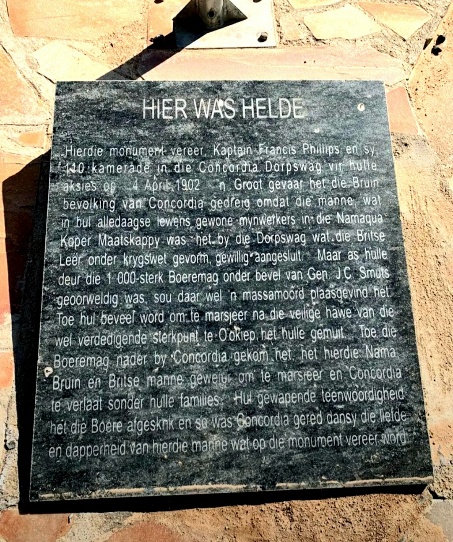 HIER WAS HELDE
Hierdie monument vereer, Kaptein Francis Phillips en sy,
110 kamerade in die Concordia Dorpswag vir hulle
aksies op 4 April 1902 'n Groot gevaar het die Bruin
bevolking van Concordia gedreig omdat die manne, wat
in hul alledaagse lewens gewone mynwerkers in die Namaqua
Koper Maatskappy was het by die Dorpswag wat die Britse
Leer onder krygswet gevorm, gewillig aangesluit. Maar as hulle
deur die 1 000-sterk Boeremag onder bevel van Gen. J.C. Smuts
geoorweldig was, sou daar wel 'n massamoord plaasgevind het.
Toe hul beveel word om te marsjeer na die veilige hawe van die
wel verdedigende sterkpunt te O'okiep het hulle gemuit. Toe die
Boeremag nader by Concordia gekom het, het hierdie Nama,
Bruin en Britse manne geweier om te marsjeer en Concordia
te verlaat sonder hulle families. Hul gewapende teenwoordigheid
het die Boere afgeskrik en so was Concordia gered dansy die liefde
en dapperheid van hierdie manne wat op die monument vereer word.